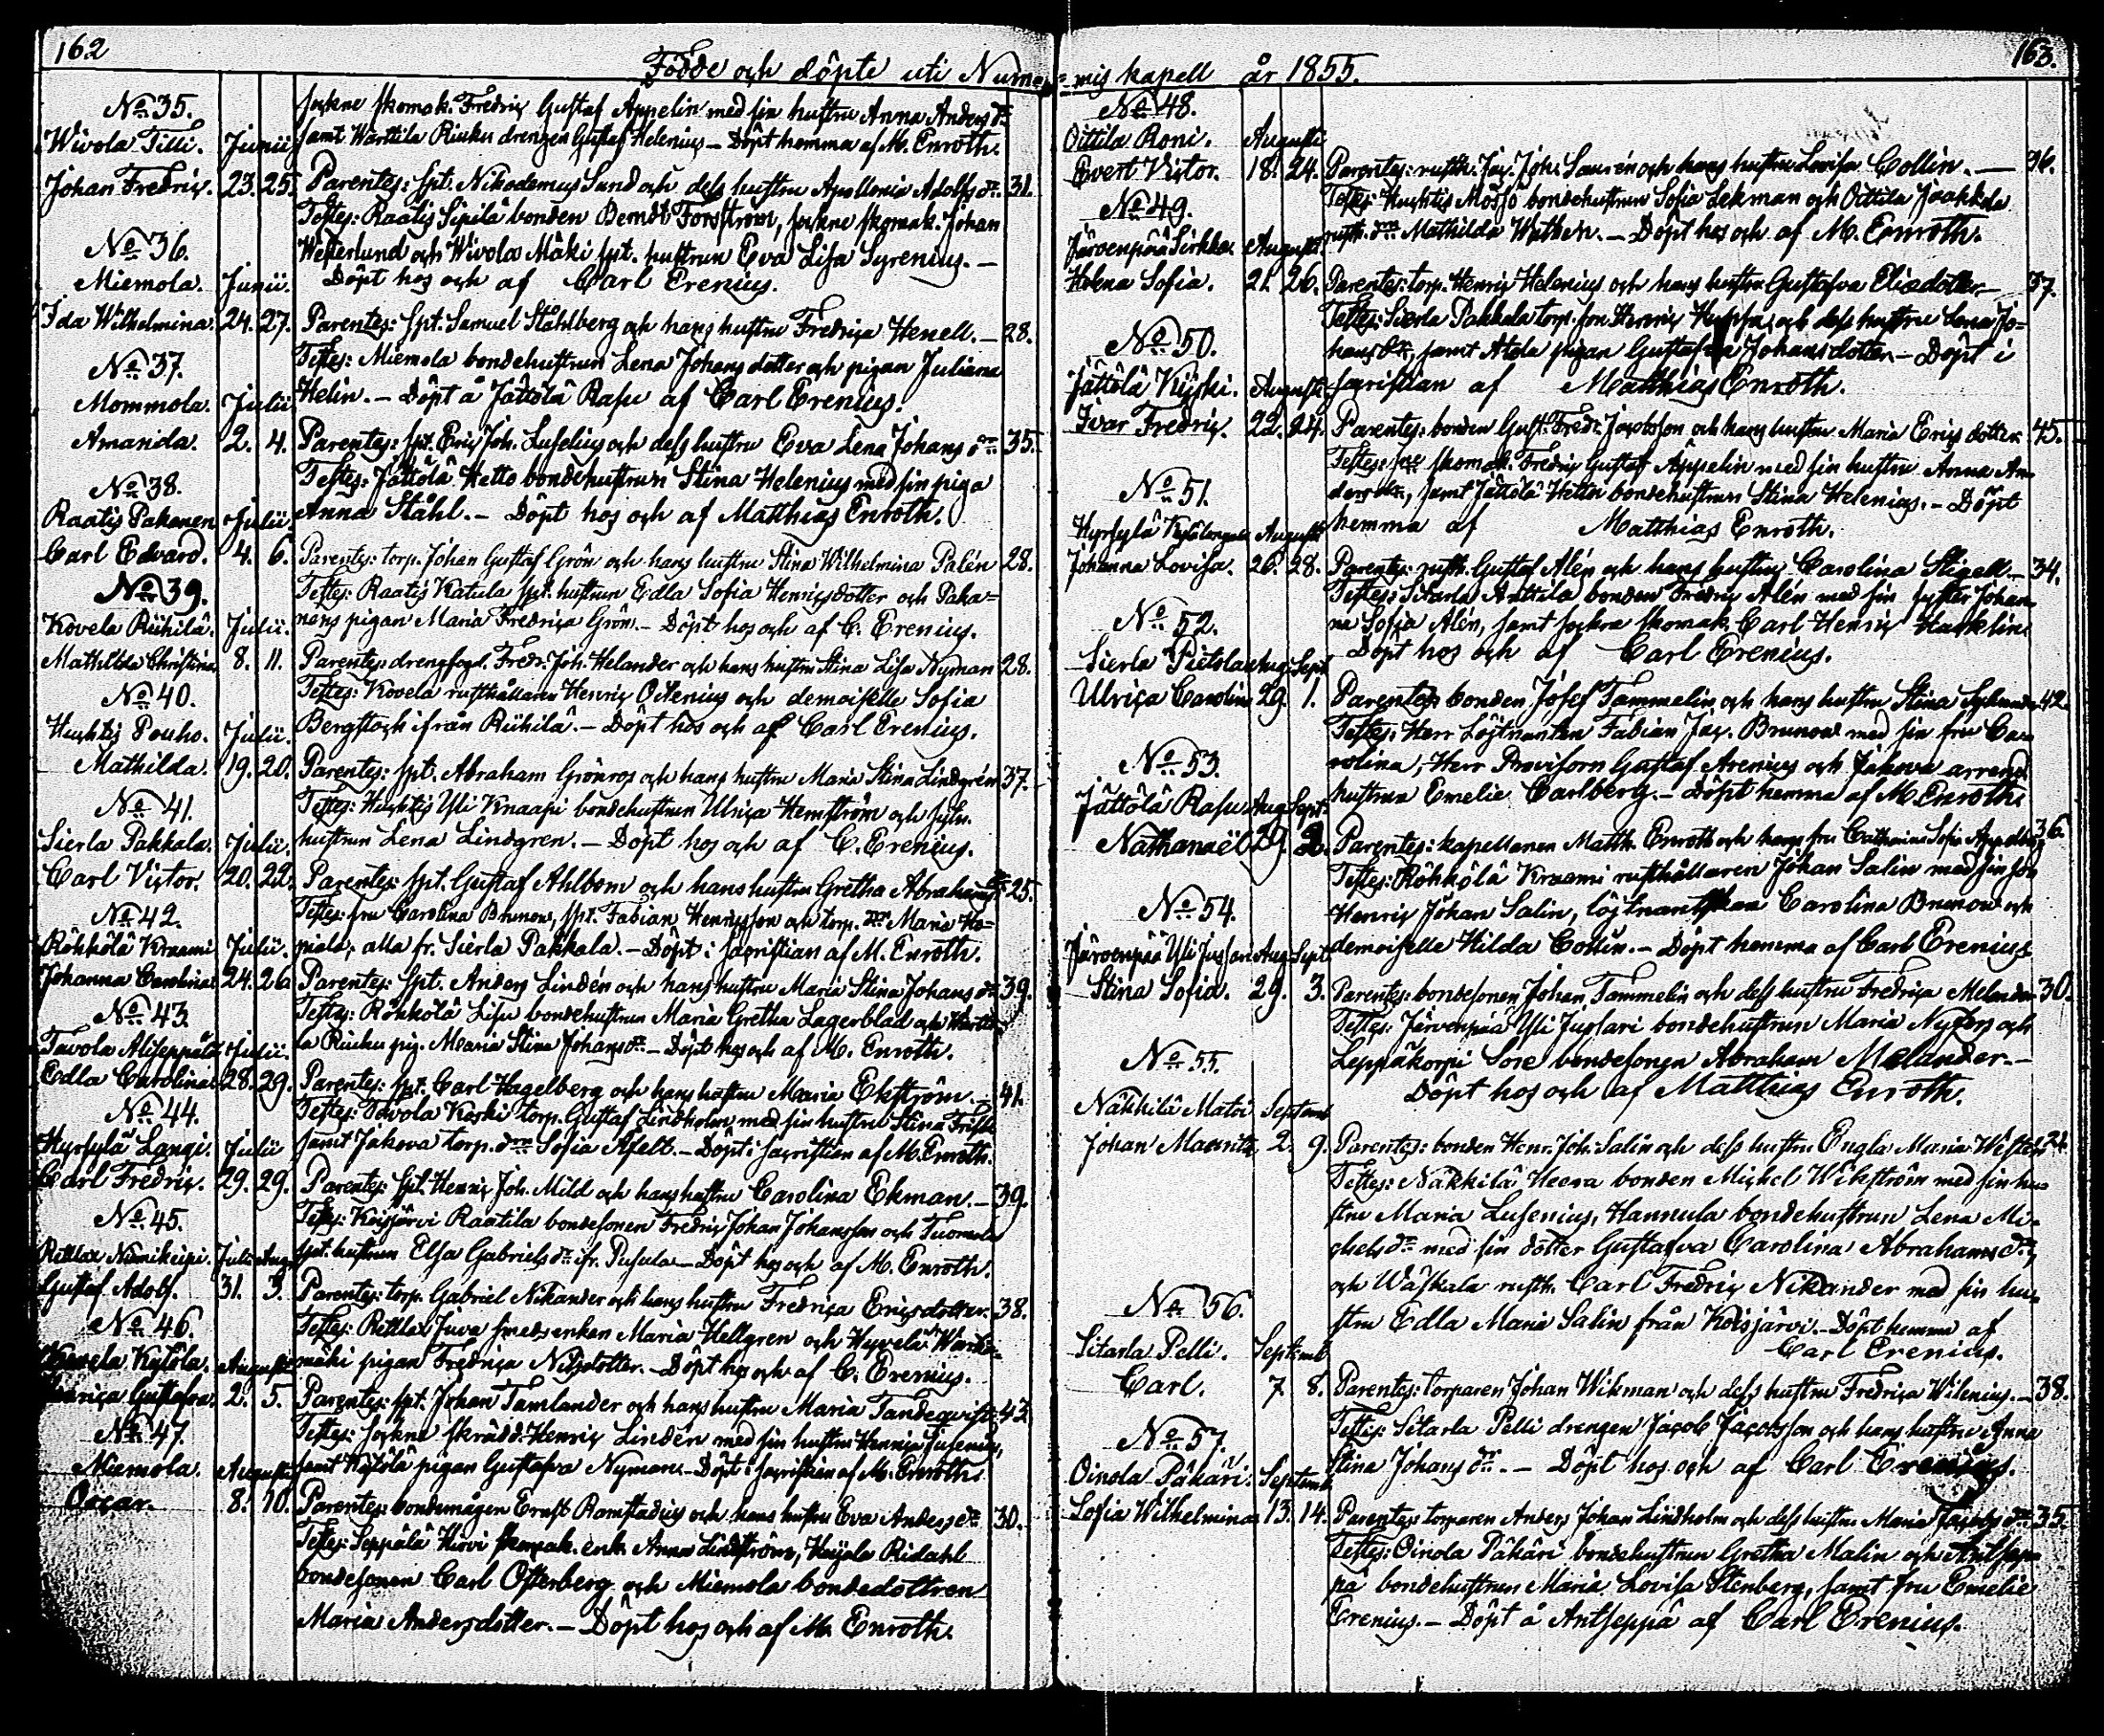 162
Födde och döpte uti Nummis kapell år 1855.
163.
sockne skomak. Fredric Gustaf Appelin med sin hustru Anna Anders dr
samt Warttila Riuku drengen Gustaf Helenius – Döpt hemma af M. Enroth.
No 35.
Wivola Tilli. Junii
Johan Fredric. 23. 25.
Parentes: spt. Nikodemus Sund och dess hustru Apollonia Adolfs dr. 31.
Testes: Raatis Sipilä bonden Berndt Forsström, sockne skomak. Johan
Westerlund och Wivola Mäki spt. hustrun Eva Lisa Syrenius. –
Döpt hos och af Carl Erenius.
No 36.
Miemola. Junii.
Ida Wilhelmina. 24. 27.
Parentes: spt. Samuel Ståhlberg och hans hustru Fredrica Henell. – 28.
Testes: Miemola bondehustrun Lena Johans dotter och pigan Juliana
Helin. – Döpt å Jättölä Rasu af Carl Erenius.
No 37.
Mommola. Julii.
Amanda. 2. 4.
Parentes: spt. Eric Joh. Lusenius och dess hustru Eva Lena Johans dr 35.
Testes: Jättölä Hetto bondehustrun Stina Helenius med sin piga
Anna Ståhl. – Döpt hos och af Matthias Enroth.
No 38.
Raatis Pakanen Julii.
Carl Edvard. 4. 6.
Parentes: torp. Johan Gustaf Grön och hans hustru Stina Wilhelmina Palén 28.
Testes: Raatis Katula spt. hustrun Edla Sofia Henricsdotter och Paka=
nens pigan Maria Fredrica Grön. – Döpt hos och af C. Erenius.
No 39.
Kovela Riihilä. Julii.
Mathilda Christina 8. 11.
Parentes: drengfogd. Fredr. Joh. Helander och hans hustru Stina Lisa Nyman 28.
Testes: Kovela rusthållaren Henric Ollenius och demoiselle Sofia
Bergstock ifrån Riihilä. – Döpt hos och af Carl Erenius.
No 40.
Huhtis Pouho. Julii.
Mathilda. 19. 20.
Parentes: spt. Abraham Grönros och hans hustru Maria Stina Lindgrén 37.
Testes: Huhtis Yli Knaapi bondehustrun Ulrica Hemström och sytn.
hustrun Lena Lindgren. – Döpt hos och af C. Erenius.
No 41.
Sierla Pakkala. Julii.
Carl Victor. 20. 22.
Parentes: spt. Gustaf Ahlbom och hans hustru Gretha Abrahams dr 25.
Testes: fru Carolina Brunow, spt. Fabian Henricsson och torp. dr. Maria Ho=
piala, alla fr. Sierla Pakkala. – Döpt i sacristian af M. Enroth.
No 42.
Röhkölä Kraami Julii.
Johanna Carolina 24. 26
Parentes: spt. Anders Lindén och hans hustru Maria Stina Johans dr 39.
Testes: Röhkölä Lisu bondehustrun Maria Gretha Lagerblad och Wartti=
la Riuku pig. Maria Stina Johans dr. – Döpt hos och af M. Enroth.
No 43.
Tavola Aliseppälä Julii.
Edla Carolina 28. 29.
Parentes: spt. Carl Hagelberg och hans hustru Maria Ekström. – 41.
Testes: Tavola Koski torp. Gustaf Lindholm med sin hustru Stina Frisk
samt Jakova torp. drn Sofia Afelt. – Döpt i sacristian af M. Enroth.
No 44.
Hyrsylä Langi. Julii
Carl Fredric. 29. 29.
Parentes: spt. Henric Joh. Mild och hans hustru Carolina Ekman. – 39.
Testes: Koisjärvi Raatila bondesonen Fredric Johan Johansson och Tuomola
spt. hustrun Elsa Gabriels dr. ifr. Pusula – Döpt hos och af M. Enroth.
No 45.
Retlax Numikeipi. Julii Aug.
Gustaf Adolf. 31. 3.
Parentes: torp. Gabriel Nikander och hans hustru Fredrica Ericsdotter. 38.
Testes: Retlax Juva smedsenkan Maria Hellgren och Hyvelä
mäki pigan Fredrica Nilsdotter. – Döpt hos och af C. Erenius.
No 46.
Kovela Kylölä. Augusti
Henrica Gustafva. 2. 5.
Parentes: spt. Johan Tamlander och hans hustru Maria Tandeqvist 43
Testes: sockne skrädd. Henric Lindén med sin hustru Henrica Jusenius,
samt Kylölä pigan Gustafva Nyman. – Döpt i sacristian af M. Enroth.
No 47.
Miemola. Augusti
Oscar. 8. 10.
Parentes: bondemågen Ernst Ramstadius och hans hustru Eva Anders dr 30.
Testes: Seppälä Hirvi skomak. enk. Anna Lindström, Heijala Ridahl
bondesonen Carl Österberg och Miemola bondedottren
Maria Andersdotter. – Döpt hos och af M. Enroth.
No 48.
Oittila Roni. Augusti
Evert Victor. 18. 24.
Parentes: rusth. Jac. Joh. Saurén och hans hustru Lovisa Collin. – 36.
Testes: Huhtis Mossö bondehustrun Sofia Lekman och Oittila Jaakkola
rusth. drn Mathilda Wathen. – Döpt hos och af M. Enroth.
No 49.
Järvenpää Sirkka. Augusti.
Helena Sofia. 21. 26.
Parentes: torp. Henric Helenius och hans hustru Gustafva Eliedotter – 37.
Testes: Sierla Pakkala torp. son Henric och dess hustru Lena Jo=
hans dr., samt Atola pigan Gustafva Johansdotter. – Döpt i
sacristian af Matthias Enroth.
No 50.
Jättölä Kyski. Augusti
Ivar Fredric. 22. 24.
Parentes: bonden Gust. Fredr. Jacobsson och hans hustru Maria Erics dotter 45.
Testes: sne skomak. Fredric Gustaf Appelin med sin hustru Anna An=
ders dr., samt Jättölä Hetto bondehustrun Stina Helenius. – Döpt
hemma af Matthias Enroth.
No 51.
Hyrsylä Augusti
Johanna Lovisa. 26. 28.
Parentes: rusth. Gustaf Alén och hans hustru Carolina Stigell – 34.
Testes: Sitarla Anttila bonden Fredric Alén med sin syster Johan=
na Sofia Alén, samt sockne skomak. Carl Henric Hacklin.
Döpt hos och af Carl Erenius.
No 52.
Sierla Pietola Aug. Sept.
Ulrica Carolina 29. 1.
Parentes: bonden Josef Tammelin och hans hustru Stina 42.
Testes: Herr Löjtnanten Fabian Jac. Brunow med sin fru Ca=
rolina, Herr Provisorn Gustaf Arenius och Jakova arrend.
hustrun Emelie Carlberg. – Döpt hemma af M. Enroth.
No 53.
Jättölä Rasu Aug. Sept.
Nathanaël 29. 2.
Parentes: kapellanen Matth. Enroth och hans fru Catharina Sofia Appelberg 36.
Testes: Röhkölä Kraami rusthållaren Johan Salin med sin son
Henric Johan Salin, löjtnantskan Carolina Brunow och
demoiselle Hilda Collin. – Döpt hemma af Carl Erenius.
No 54.
Järvenpää Yli Jussari Aug. Sept.
Stina Sofia. 29. 3.
Parentes: bondesonen Johan Tammelin och dess hustru Fredrica Melander 30.
Testes: Järvenpää Yli Jussari bondehustrun Maria Nyfors och
Leppäkorpi Sore bondesonen Abraham Melander. –
Döpt hos och af Matthias Enroth.
No 55.
Näkkilä Matoi Septemb
Johan Mauritz. 2. 9.
Parentes: bonden Henr. Joh. Salin och dess hustru Engla Maria Wester 24.
Testes: Näkkilä Heera bonden Michel Wikström med sin hu=
stru Maria Lusenius, Hannula bondehustrun Lena Mi=
chels dr med sin dotter Gustafva Carolina Abrahams dr,
och Wäskala rusth. Carl Fredric Nikander med sin hu=
stru Edla Maria Salin från Koisjärvi. – Döpt hemma af
Carl Erenius.
No 56.
Sitarla Pelli. Septemb
Carl. 7. 8.
Parentes: torparen Johan Wikman och dess hustru Fredrica Wilenius. – 38.
Testes: Sitarla Pelli drengen Jacob Jacobsson och hans hustru Anna
Stina Johans dr. – Döpt hos och af Carl Erenius.
No 57.
Oinola Päkäri. Septemb
Sofia Wilhelmina 13. 14.
Parentes: torparen Anders Johan Lindholm och dess hustru Maria Jacobs dr 35.
Testes: Oinola Päkäri bondehustrun Gretha Malin och Antsep=
pä bondehustrun Maria Lovisa Stenberg, samt fru Emelie
Erenius. – Döpt å Antseppä af Carl Erenius.